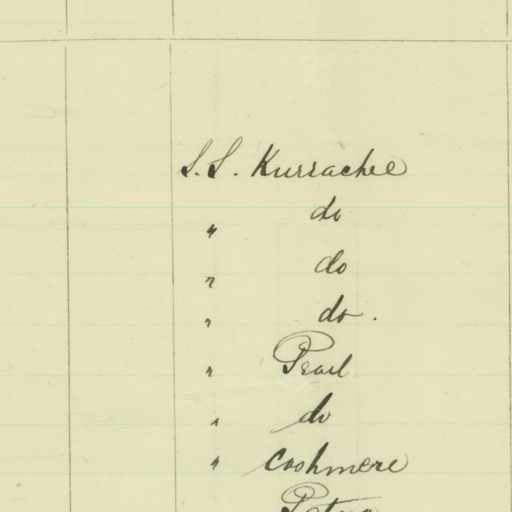 S.S. Kurrachee
" do
" do
" do.
" Pearl
" do
" Cashmere
Patna